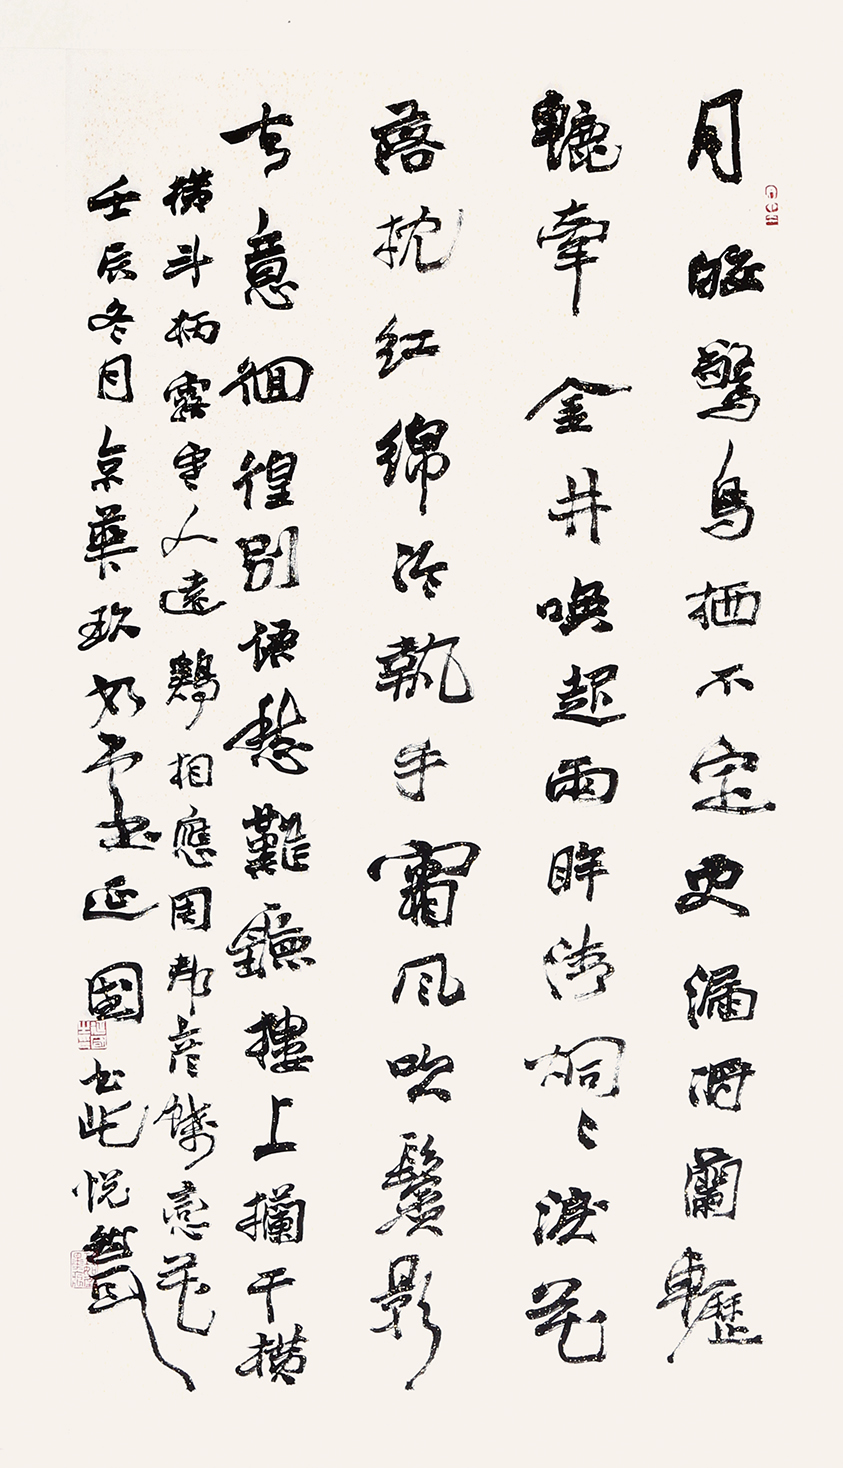 月皎驚烏栖不定更漏將蘭轣
轆牽金井喚起兩眸清炯々淚花
落枕紅綿冷執手霜风吹鬢影
去意徊徨別語愁難聽樓上欄干橫
橫斗柄露寒人遠鷄相應周邦彥蝶戀花
壬辰冬月京華玖如延國書此悅然